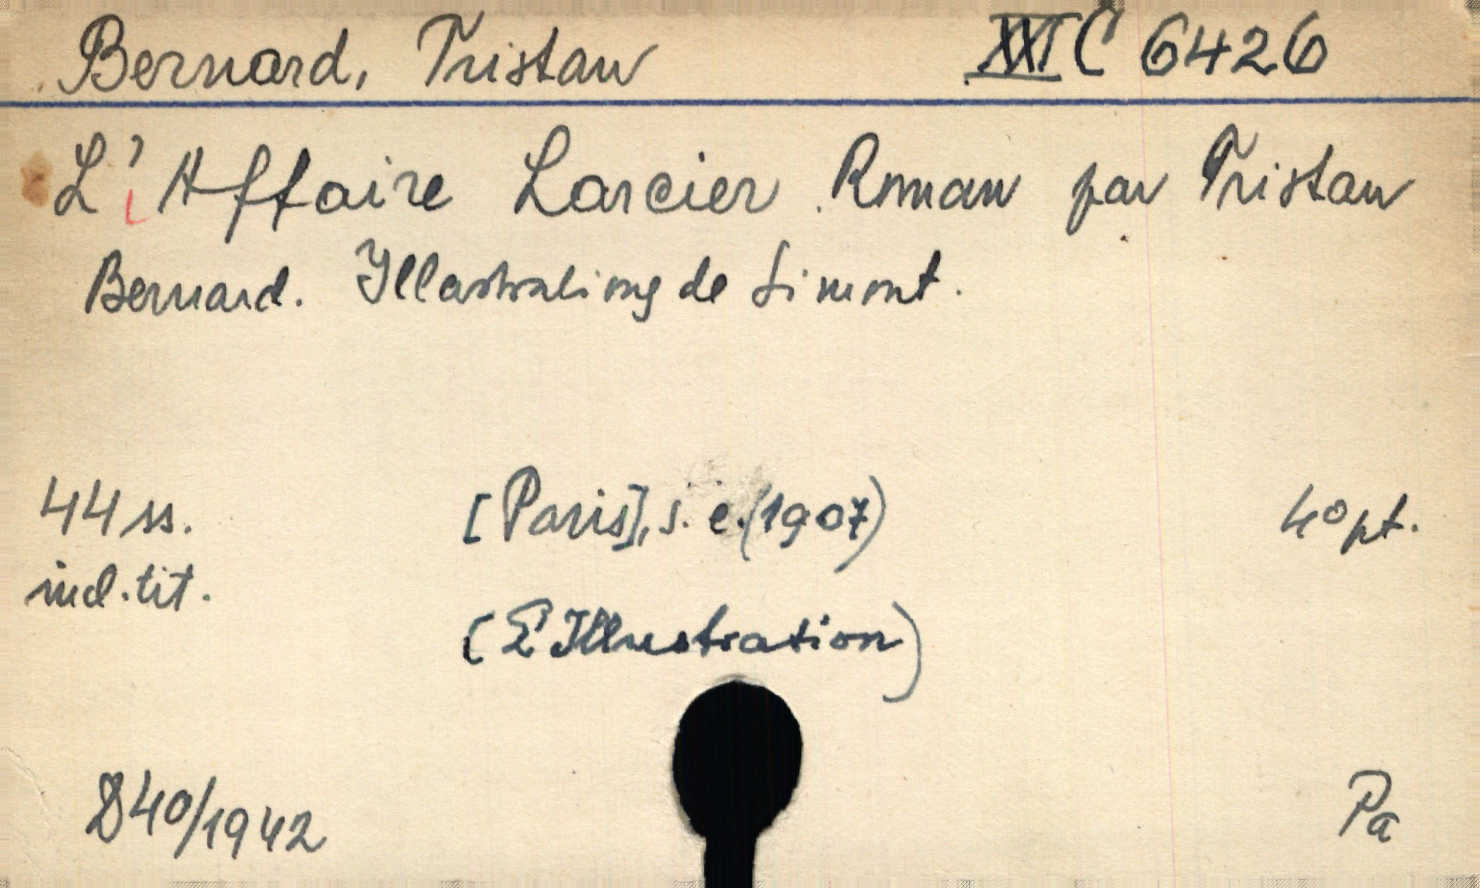 Bernard, Tristan XXI C 6426
L'Affaire Larcier. Roman par Tristan
Bernard. Illustrations de Simont.
44 ss. [Paris], s. e. (1907) 4° pt.
incl. tit.
(L'Illustration)
840/1942 Pa